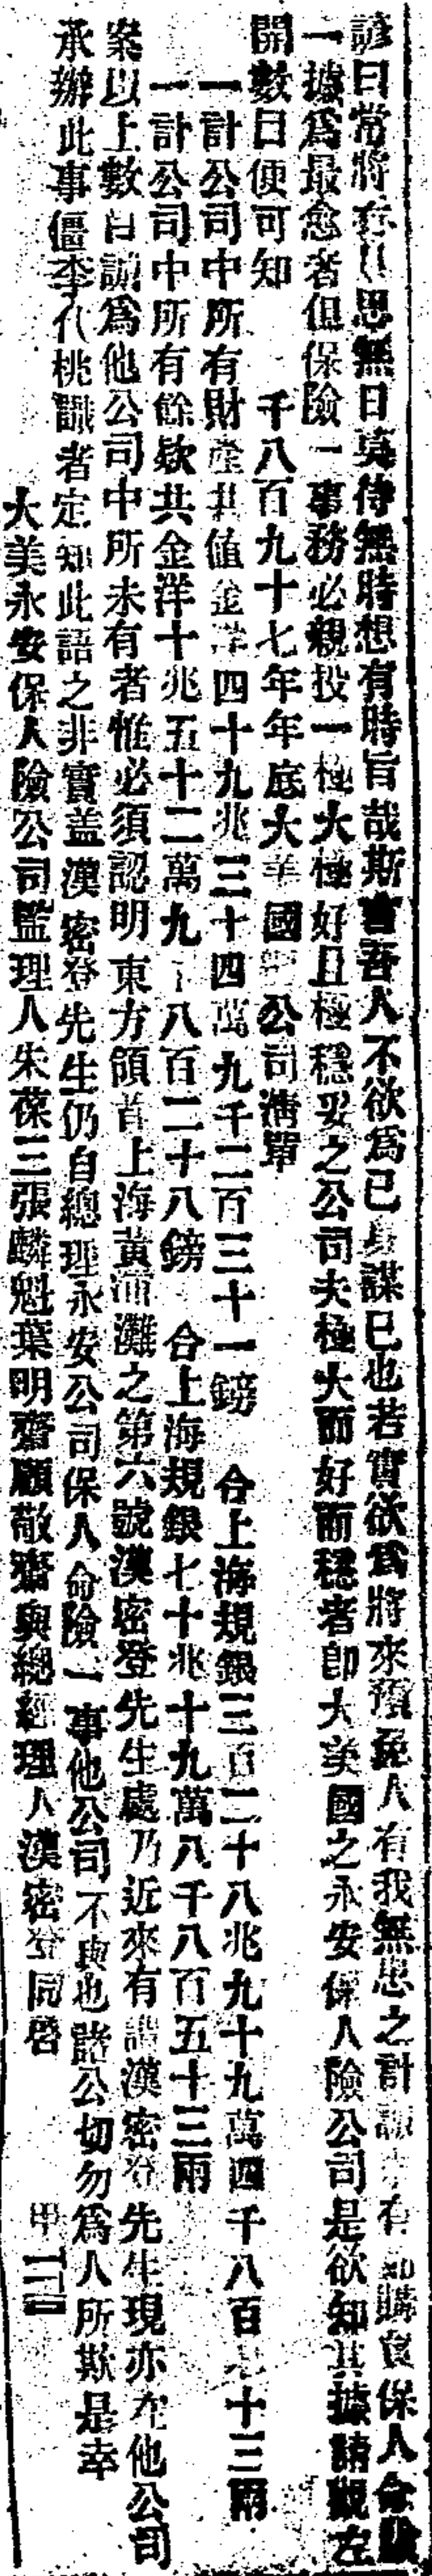 諺曰常將有日思無日莫待無時想有時旨哉斯言吾人不欲爲已身謀已也若實欲爲將來預籌人有我無患之計誠未有如購買保人命險
一據爲最愈者但保險一事務必親投一極大極好且極穩妥之公司夫極大而好而穩者卽大美國之永安保人險公司是欲知其據請觀左
開數目便可知　千八百九十七年年底大美國公司淸單
一計公司中所有財產共值金洋四十九兆三十四萬九千二百三十一鎊　合上海規銀三百二十八兆九十九萬四千八百十三兩
一計公司中所有餘欵共金洋十兆五十二萬九千八百二十八鎊　合上海規銀七十兆十九萬八千八百五十三兩
案以上數目誠爲他公司中所未有者惟必須認明東方領首上海黃浦灘之第六號漢密登先生處乃近來有謂漢密登先生現亦在他公司
承辦此事僵李代桃識者定知此語之非實蓋漢密登先生仍自總理永安公司保人命險一事他公司不與也諸公切勿爲人所欺是幸
大美永安保人險公司監理人朱葆三張麟魁葉明齋顧敬齋與總經理人漢密登同啓